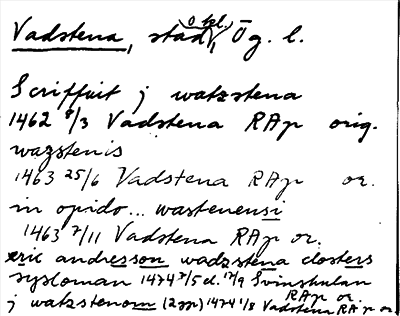 Vadstena, stad, o kl., Ög. l.
Scriffuit j watzstena
1462 8/3 Vadstena RAp orig.
wazstenis
1463 25/6 Vadstena RAp or.
in opido... wastenensi
1463 7/11 Vadstena RAp or.
eric andresson wadzstena closters
sysloman 1474 7/5 d. 17/9 Svinstulan
RAp or.
j watzstenom (2 ggr) 1474 1/8 Vadstena RAp or.